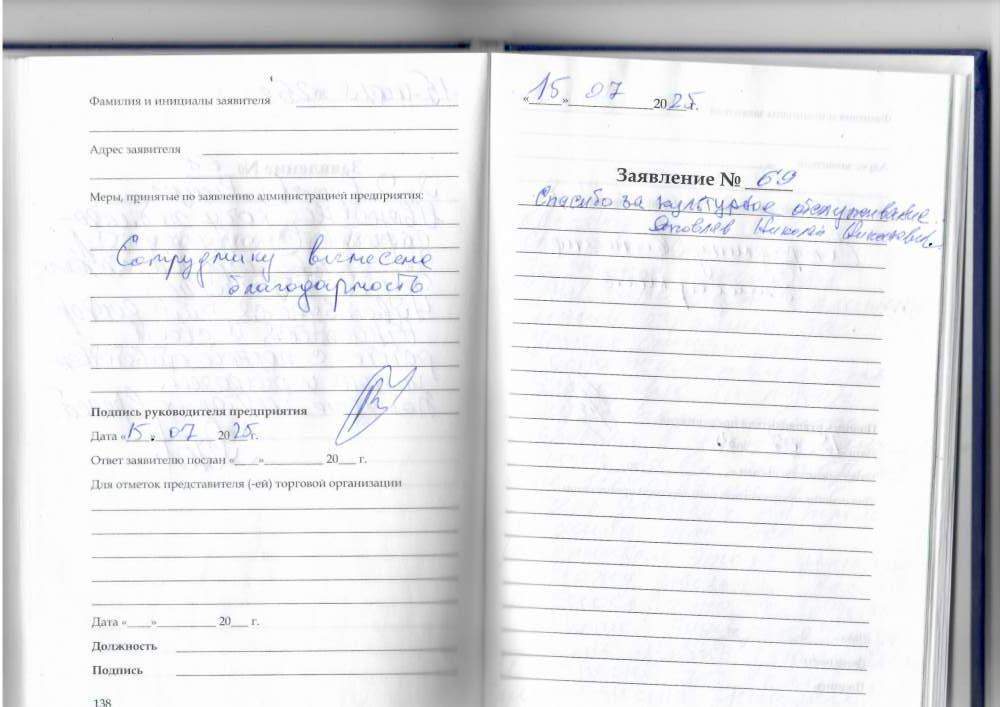 Фамилия и инициалы заявителя
Адрес заявителя
Меры, принятые по заявлению администрацией предприятия:
Сотруднику вынесена
благодарность
Подпись руководителя предприятия
Дата «15» 07 2025г.
Ответ заявителю послан «____»__________ 20___ г.
Для отметок представителя (-ей) торговой организации
Дата «____»__________ 20___ г.
Должность
Подпись
138
«15» 07 2025г.
Заявление № 69
Спасибо за культурное обслуживание.
Яковлев Николай